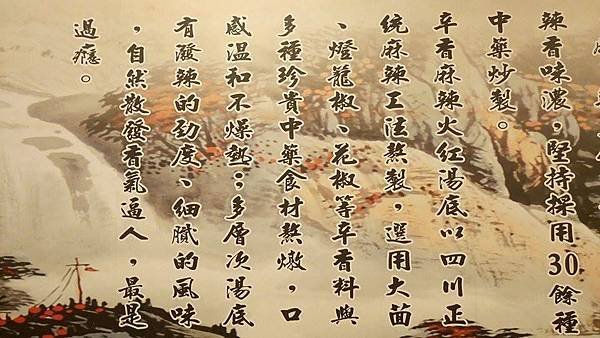 辣香味濃，堅持採用30餘種
中藥炒製。
辛香麻辣火紅湯底以四川正
統麻辣工法熬製，選用大茴
、燈籠椒、花椒等辛香料與
多種珍貴中藥食材熬燉，口
感溫和不燥熱；多層次湯底
有潑辣的勁度、細膩的風味
，自然散發香氣逼人，最是
過癮。